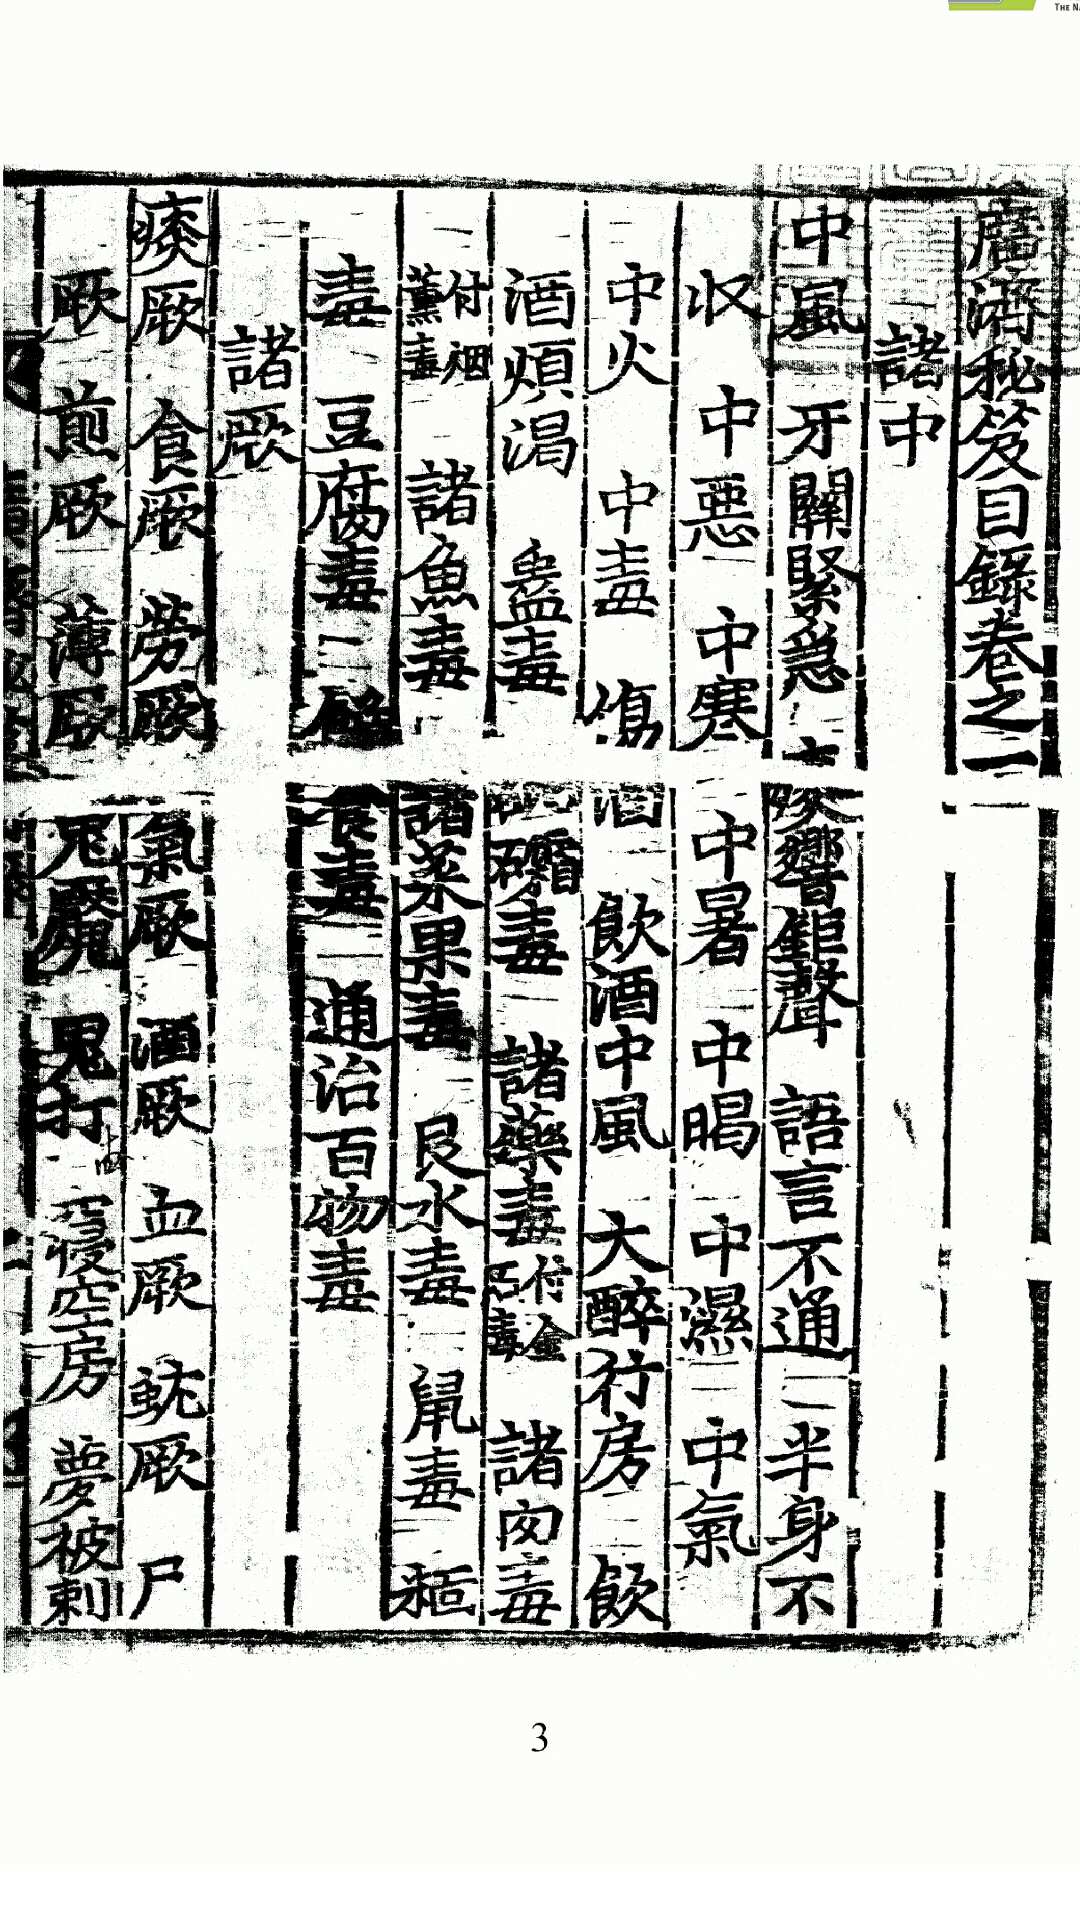 廣濟秘笈目錄卷之一
諸中
中風 牙關緊急 痰響鉅聲 語言不通 半身不
收 中惡 中寒 中暑 中暍 中濕 中氣
中火 中毒 傷酒 飲酒中風 大醉行房 飮
酒煩渴 蠱毒 砒礵毒 諸藥毒付金石毒 諸肉毒
付烟薰毒 諸魚毒 諸菜果毒 艮水毒 鼠毒
毒 豆腐毒 食毒 通治百物毒
諸厥
痰厥 食厥 勞厥 氣厥 酒厥 血厥 蚘厥 尸
厥 煎厥 薄厥 鬼魘 鬼打 寢空房 夢被刺
3